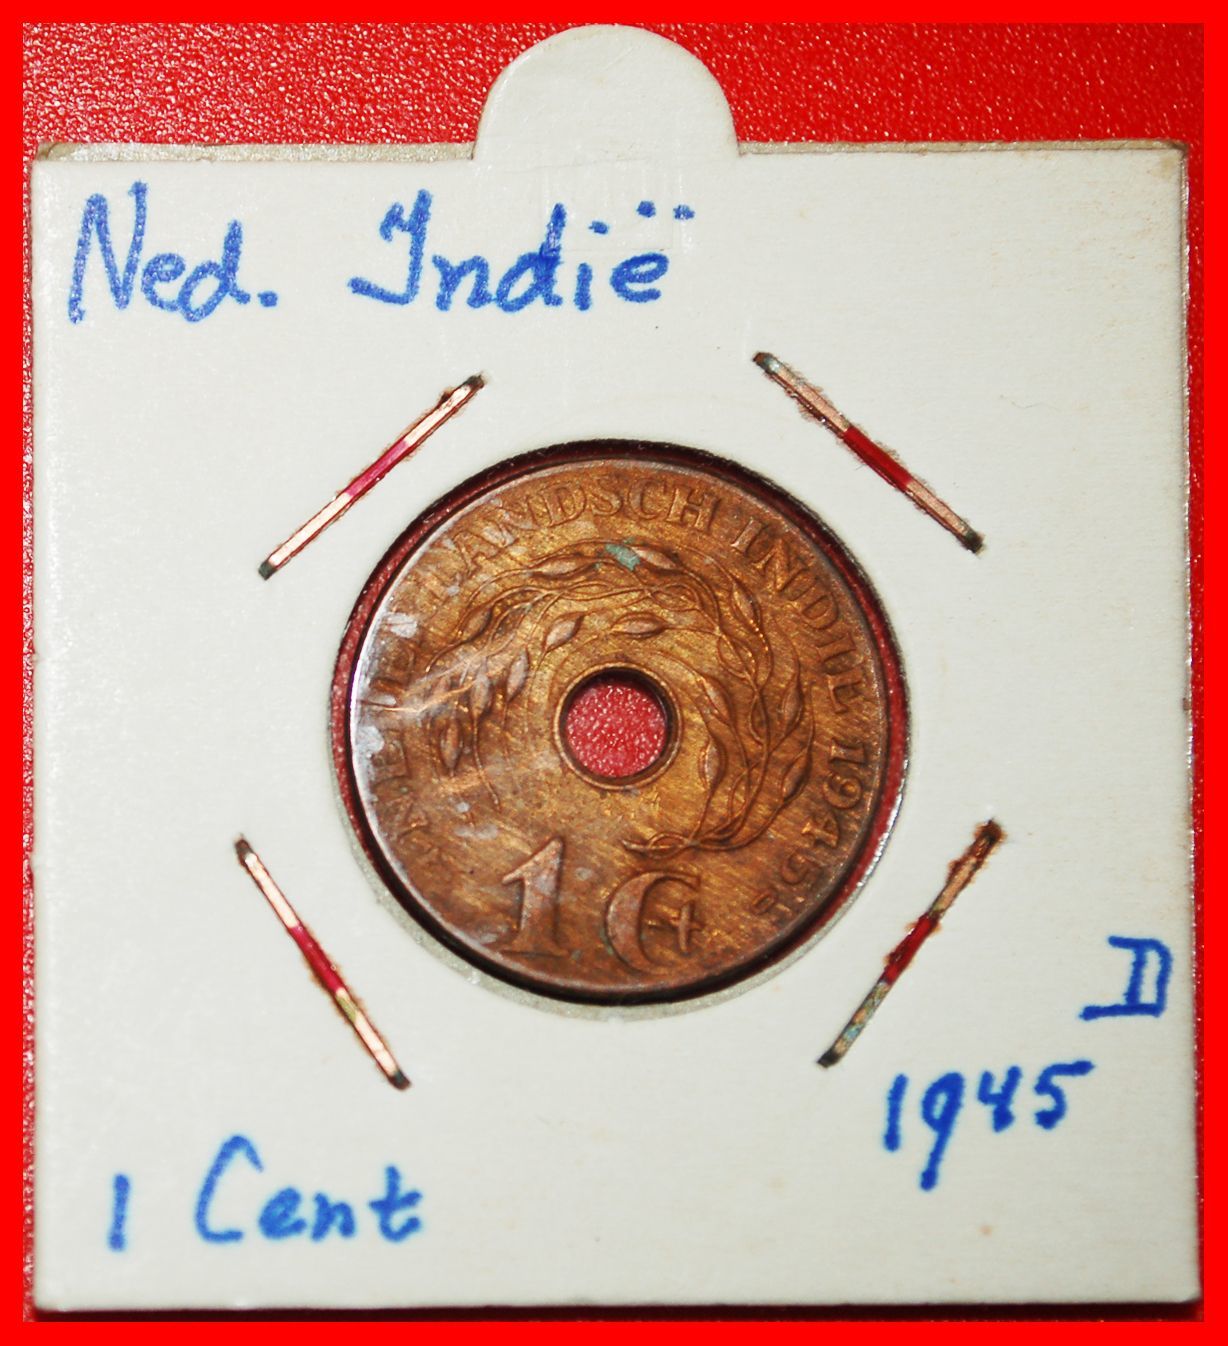 Ned. Indië
NEDERLANDSCH INDIE 1945 D
1 Ct
D
1945
1 Cent